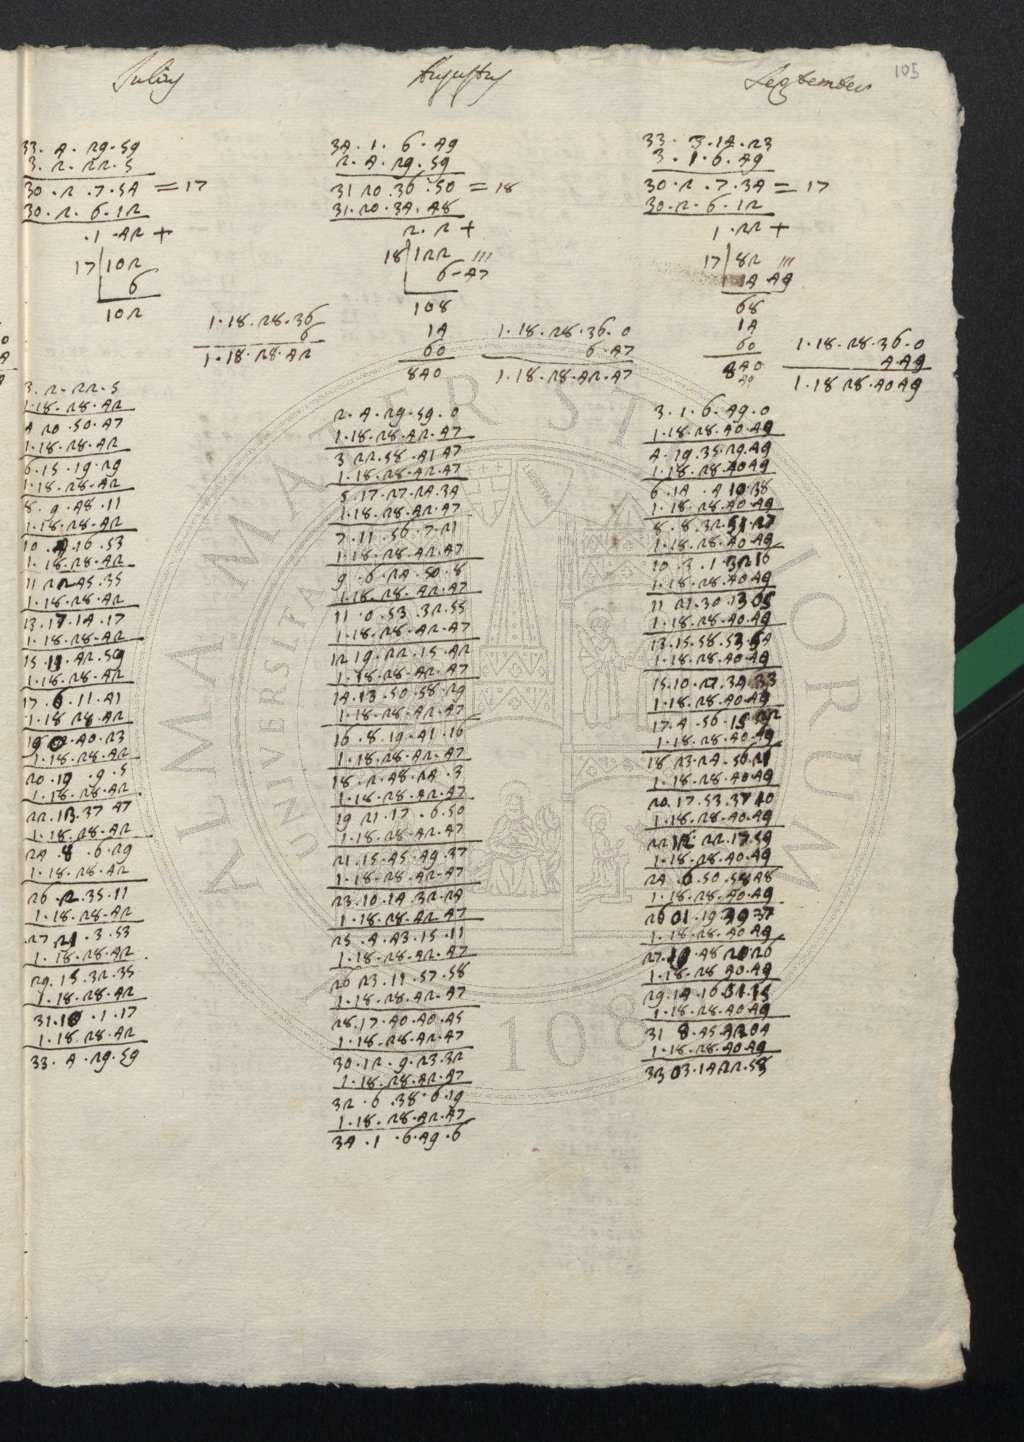 105
Julius
33.4.29.59
3.2.22.5
30.2.7.54 = 17
30.2.6.12
.1.42 +
17 102
6
102
1.18.28.36
6
1.18.28.42
3.2.22.5
1.18.28.42
4 20.50.47
1.18.28.42
6.15.19.29
1.18.28.42
8.9.48.11
1.18.28.42
10.4.16.53
1.18.28.42
11 22 45.35
1.18.28.42
13.17.14.17
1.18.28.42
15.11.42.59
1.18.28.42
17.6.11.41
1.18 28.42
19 0.40.23
1.18.28.42
20.19.9.5
1.18.28.42
22.13.37 47
1.18.28.42
24.8.6.29
1.18.28.42
26.2.35.11
1.18.28.42
27 21.3.53
1.18.28.42
29.15.32.35
1.18.28.42
31.10.1.17
1.18.28.42
33.4.29.59
Augustus
34.1.6.49
2.4.29.59
31 20.36.50 = 18
31.20.34.48
2.2 +
18 122 ///
6-47
108
14
60
840
1.18.28.36.0
6.47
1.18.28.42.47
2.4.29.59.0
1.18.28.42.47
3 22.58.41 47
1.18.28.42.47
5.17.27.24.34
1.18.28.42.47
7.11.56.7.21
1.18.28.42.47
9.6.24.50.8
1.18.28.42.47
11.0.53.32.55
1.18.28.42.47
12 19.22.15.42
1.18.28.42.47
14.13.50.58.29
1.18.28.42.47
16.8.19.41.16
1.18.28.42.47
18.2.48.24.3
1.18.28.42.47
19 21.17.6.50
1.18.28.42.47
21.15.45.49.37
1.18.28.42.47
23.10.14.32.24
1.18.28.42 47
25.4.43.15.11
1.18.28.42.47
26 23.11.57.58
1.18.28.42.47
28.17.40.40.45
1.18.28.42.47
30.12.9.23.32
1.18.28.42.47
32.6.38.6.19
1.18.28.42.47
34.1.6.49.6
September
33.3.14.23
3.1.6.49
30.2.7.34 = 17
30.2.6.12
1.22 +
17 82 ///
4 49
68
14
60
840
49
1.18.28.36.0
4.49
1.18 28.40 49
3.1.6.49.0
1.18.28.40.49
4.19.35.29.49
1.18.28.40 49
6.14.4 10 38
1.18.28.40 49
8.8.32.51.27
1.18.28.40 49
10.3.1 32 16
1.18.28.40 49
11 21.30.13 05
1.18.28.40.49
13.15.58.53.54
1.18.28.40 49
15.10.27.34 33
1.18.28.40 49
17.4.56.15 22
1.18.28.40.49
18 23.24.56 21
1.18.28.40 49
20.17.53.37 10
1.18.28.40 49
22 12 22.17.59
1.18.28.40 49
24.6.50 58 48
1.18.28.40 49
26 01.19 39 37
1.18.28.40 49
27.19.48 20 26
1.18.28 40.49
29.14.16 51.15
1.18.28.40 49
31 8.45.42 04
1.18.28.40 49
33 03.14 22.53
ALMAE MATER STUDIORUM
UNIVERSITA
1088